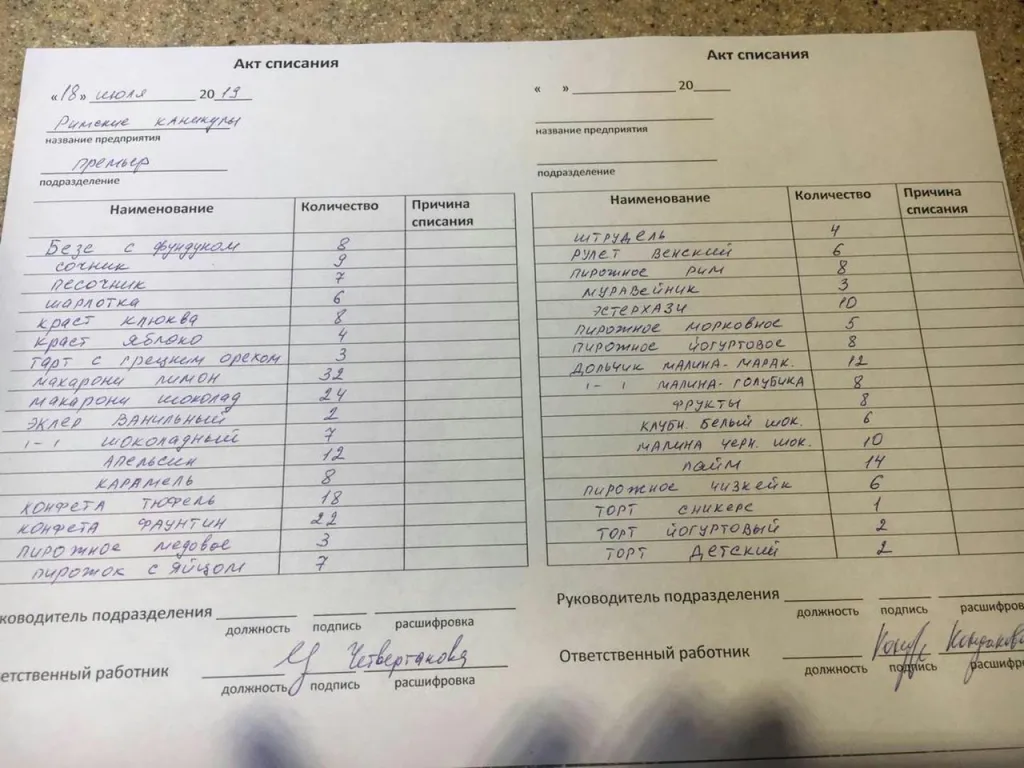 Акт списания
«18» июля 2019
Римские каникулы
название предприятия
премьер
подразделение
Наименование Количество Причина списания
Безе с фундуком 8
сочник 9
песочник 7
шарлотка 6
краст клюква 8
краст яблоко 4
тарт с грецким орехом 3
макарони лимон 32
макарони шоколад 24
эклер ванильный 2
1-1 шоколадный 7
апельсин 12
карамель 8
конфета тюфель 18
конфета фаунтин 22
пирожное медовое 3
пирожок с яйцом 7
ководитель подразделения
должность подпись расшифровка
етственный работник Четвертакова
должность подпись расшифровка
Акт списания
« » 20
название предприятия
подразделение
Наименование Количество Причина списания
штрудель 4
рулет венский 6
пирожное рим 8
муравейник 3
эстерхази 10
пирожное морковное 5
пирожное йогуртовое 8
дольчик малина-марак. 12
1-1 малина-голубика 8
фрукты 8
клубн. белый шок. 6
малина черн. шок. 10
лайм 14
пирожное чизкейк 6
торт сникерс 1
торт йогуртовый 2
торт детский 2
Руководитель подразделения
должность подпись расшифровка
Ответственный работник
должность подпись расшифр